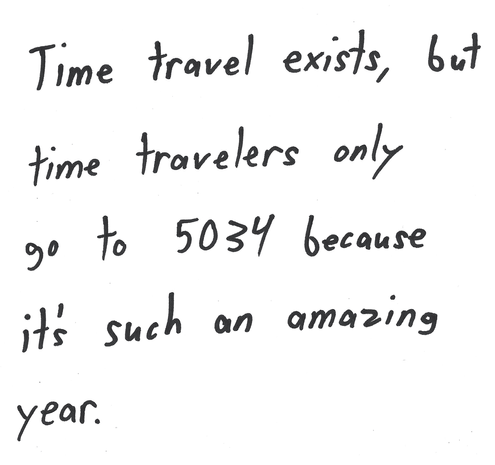 Time travel exists, but
time travelers only
go to 5034 because
it's such an amazing
year.